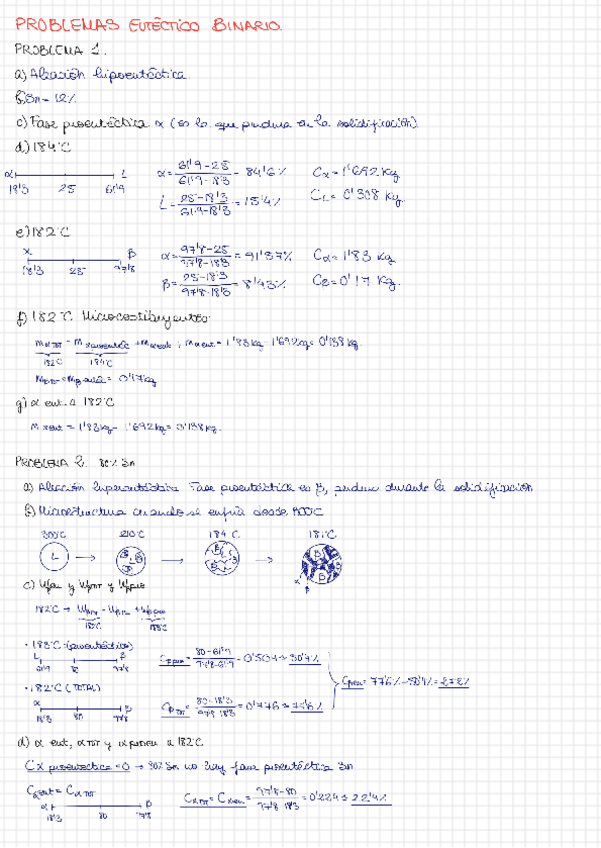 PROBLEMAS EUTÉCTICO BINARIO.
PROBLEMA 1.
a) Aleación hipoeutéctica.
b) Sn - 12%
c) Fase proeutéctica α (es la que produce en la solidificación)
d) 184°C
α L
18'3 25 61'9
α = 61'9-25 / 61'9-18'3 = 84'6% Cα = 1'692 Kg
L = 25-18'3 / 61'9-18'3 = 15'4% CL = 0'308 Kg.
e) 182°C
α β
18'3 25 97'8
α = 97'8-25 / 97'8-18'3 = 91'57% Cα = 1'83 Kg
β = 25-18'3 / 97'8-18'3 = 8'43% Cβ = 0'17 Kg.
f) 182°C Microconstituyentes
182°C 184°C
g) α eut. a 182°C
m αeut = 1'83 Kg - 1'692 Kg = 0'138 Kg.
PROBLEMA 2. 80% Sn
a) Aleación hipereutéctica. Fase proeutéctica es β, produce durante la solidificación
b) Microestructura cuando se enfría desde 300°C
300°C 210°C 184°C 181°C
L
c)
182°C →
· 183°C (proeutéctica)
L β
61'9 80 97'8
80-61'9 / 97'8-61'9 = 0'504 → 50'4%
· 182°C (TOTAL)
α β
18'3 80 97'8
Cβ TOT = 80-18'3 / 97'8-18'3 = 0'776 → 77'6%
= 77'6% - 50'4% = 27'2%
d) α eut, α TOT y α proeu a 182°C
Cα proeutéctica = 0 → 80% Sn no hay fase proeutéctica Sn
Cα eut = Cα TOT
α β
18'3 80 97'8
Cα TOT = Cα eu = 97'8-80 / 97'8-18'3 = 0'224 → 22'4%